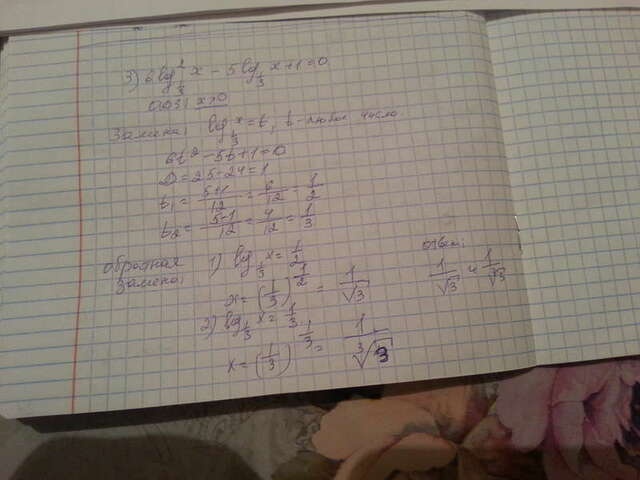 3) 6log²_{1/3} x - 5log_{1/3} x + 1 = 0
ОДЗ: x>0
Замена: log_{1/3} x = t, t - любое число
6t² - 5t + 1 = 0
D = 25 - 24 = 1
t₁ = (5+1)/12 = 6/12 = 1/2
t₂ = (5-1)/12 = 4/12 = 1/3
Обратная замена:
1) log_{1/3} x = 1/2
x = (1/3)^{1/2} = 1/√3
2) log_{1/3} x = 1/3
x = (1/3)^{1/3} = 1/∛3
Ответ:
1/√3 и 1/∛3